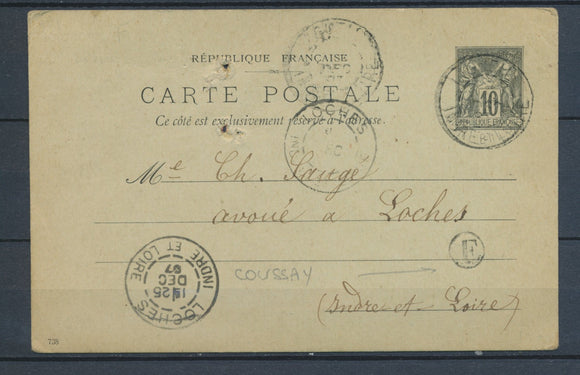 RÉPUBLIQUE FRANÇAISE
CARTE POSTALE
Ce côté est exclusivement réservé à l'adresse.
10
LOCHES
DEC
Me Ch. Sauge
avoué à Loches
E
COUSSAY
(Indre-et-Loire)
LOCHES
INDRE ET LOIRE
25
DEC
97
738